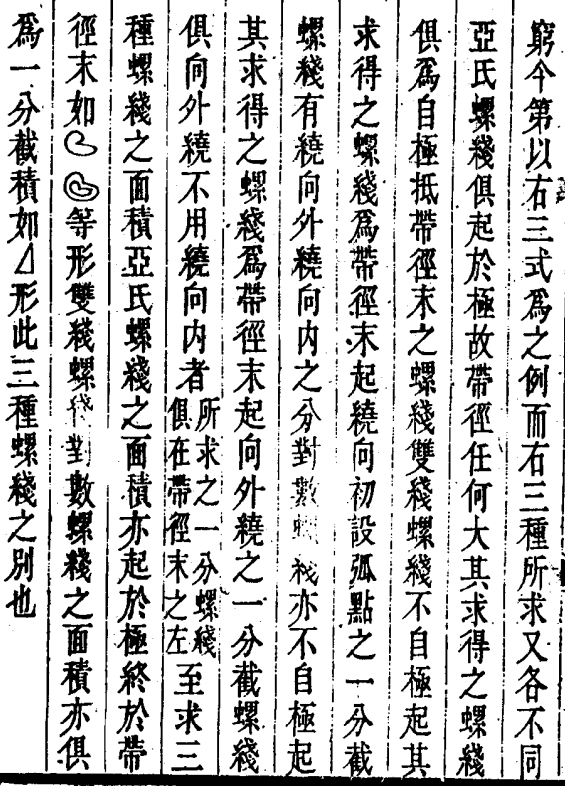 窮今第以右三式爲之例而右三種所求又各不同
亞氏螺綫俱起於極故帶徑任何大其求得之螺綫
俱爲自極抵帶徑末之螺綫雙綫螺綫不自極起其
求得之螺綫爲帶徑末起繞向初設弧點之一分截
螺綫有繞向外繞向內之分對數螺綫亦不自極起
其求得之螺綫爲帶徑末起向外繞之一分截螺綫
俱向外繞不用繞向內者所求之一分螺綫俱在帶徑末之左至求三
種螺綫之面積亞氏螺綫之面積亦起於極終於帶
徑末如等形雙綫螺綫對數螺綫之面積亦俱
爲一分截積如形此三種螺綫之別也